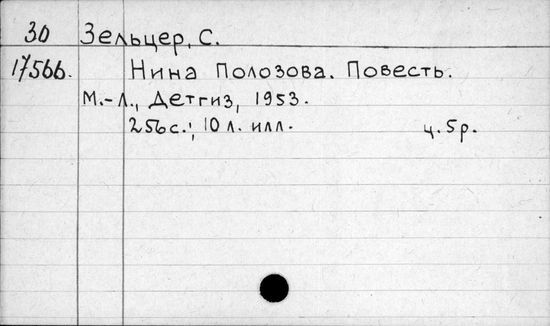 30 Зельцер, С.
17566. Нина Полозова. Повесть.
М.-Л., Детгиз, 1953.
256 с.; 10 л. илл. ц. 5 р.